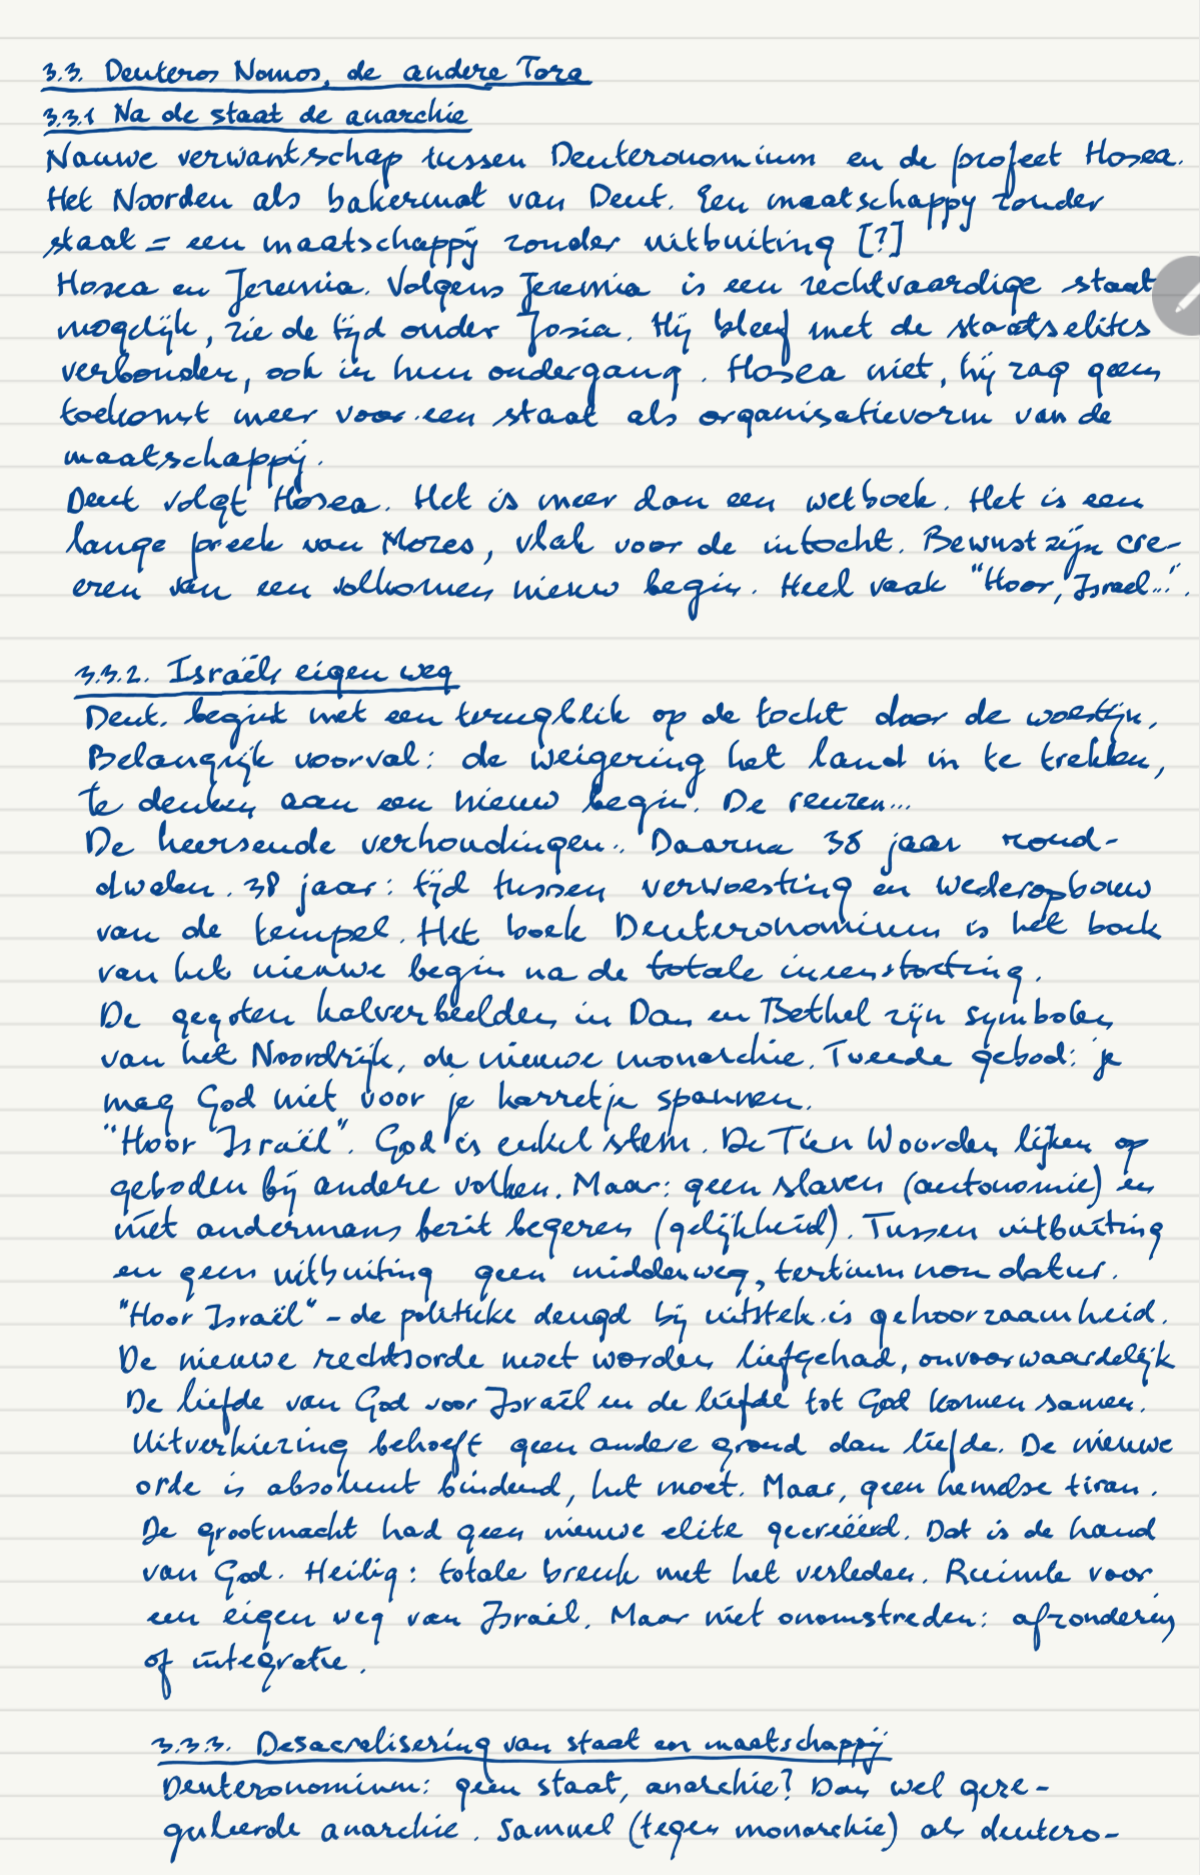 3.3. Deuteros Nomos, de andere Tora
3.3.1 Na de staat de anarchie
Nauwe verwantschap tussen Deuteronomium en de profeet Hosea.
Het Noorden als bakermat van Deut. Een maatschappij zonder
staat = een maatschappij zonder uitbuiting [?]
Hosea en Jeremia. Volgens Jeremia is een rechtvaardige staat
mogelijk, zie de tijd onder Josia. Hij bleef met de staatselites
verbonden, ook in hun ondergang. Hosea niet, hij zag geen
toekomst meer voor een staat als organisatievorm van de
maatschappij.
Deut volgt Hosea. Het is meer dan een wetboek. Het is een
lange preek van Mozes, vlak voor de intocht. Bewustzijn cre-
eren van een volkomen nieuw begin. Heel vaak "Hoor, Israel...".
3.3.2. Israëls eigen weg
Deut. begint met een terugblik op de tocht door de woestijn.
Belangrijk voorval: de weigering het land in te trekken,
te denken aan een nieuw begin. De reuzen...
De heersende verhoudingen.. Daarna 38 jaar rond-
dwalen. 38 jaar: tijd tussen verwoesting en wederopbouw
van de tempel. Het boek Deuteronomium is het boek
van het nieuwe begin na de totale ineenstorting.
De gegoten kalverbeelden in Dan en Bethel zijn symbolen
van het Noordrijk, de nieuwe monarchie. Tweede gebod: je
mag God niet voor je karretje spannen.
"Hoor Israël". God is enkel stem. De Tien Woorden lijken op
geboden bij andere volken. Maar: geen slaven (autonomie) en
niet andermans bezit begeren (gelijkheid). Tussen uitbuiting
en geen uitbuiting geen middenweg, tertium non datur.
"Hoor Israël" - de politieke deugd bij uitstek is gehoorzaamheid.
De nieuwe rechtsorde moet worden liefgehad, onvoorwaardelijk
De liefde van God voor Israël en de liefde tot God komen samen.
Uitverkiezing behoeft geen andere grond dan liefde. De nieuwe
orde is absoluut bindend, het moet. Maar, geen hemelse tiran.
De grootmacht had geen nieuwe elite gecreëerd. Dat is de hand
van God. Heilig: totale breuk met het verleden. Ruimte voor
een eigen weg van Israël. Maar niet onomstreden: afzondering
of integratie.
3.3.3. Desacralisering van staat en maatschappij
Deuteronomium: geen staat, anarchie? Dan wel gere-
guleerde anarchie. Samuel (tegen monarchie) als deutero-